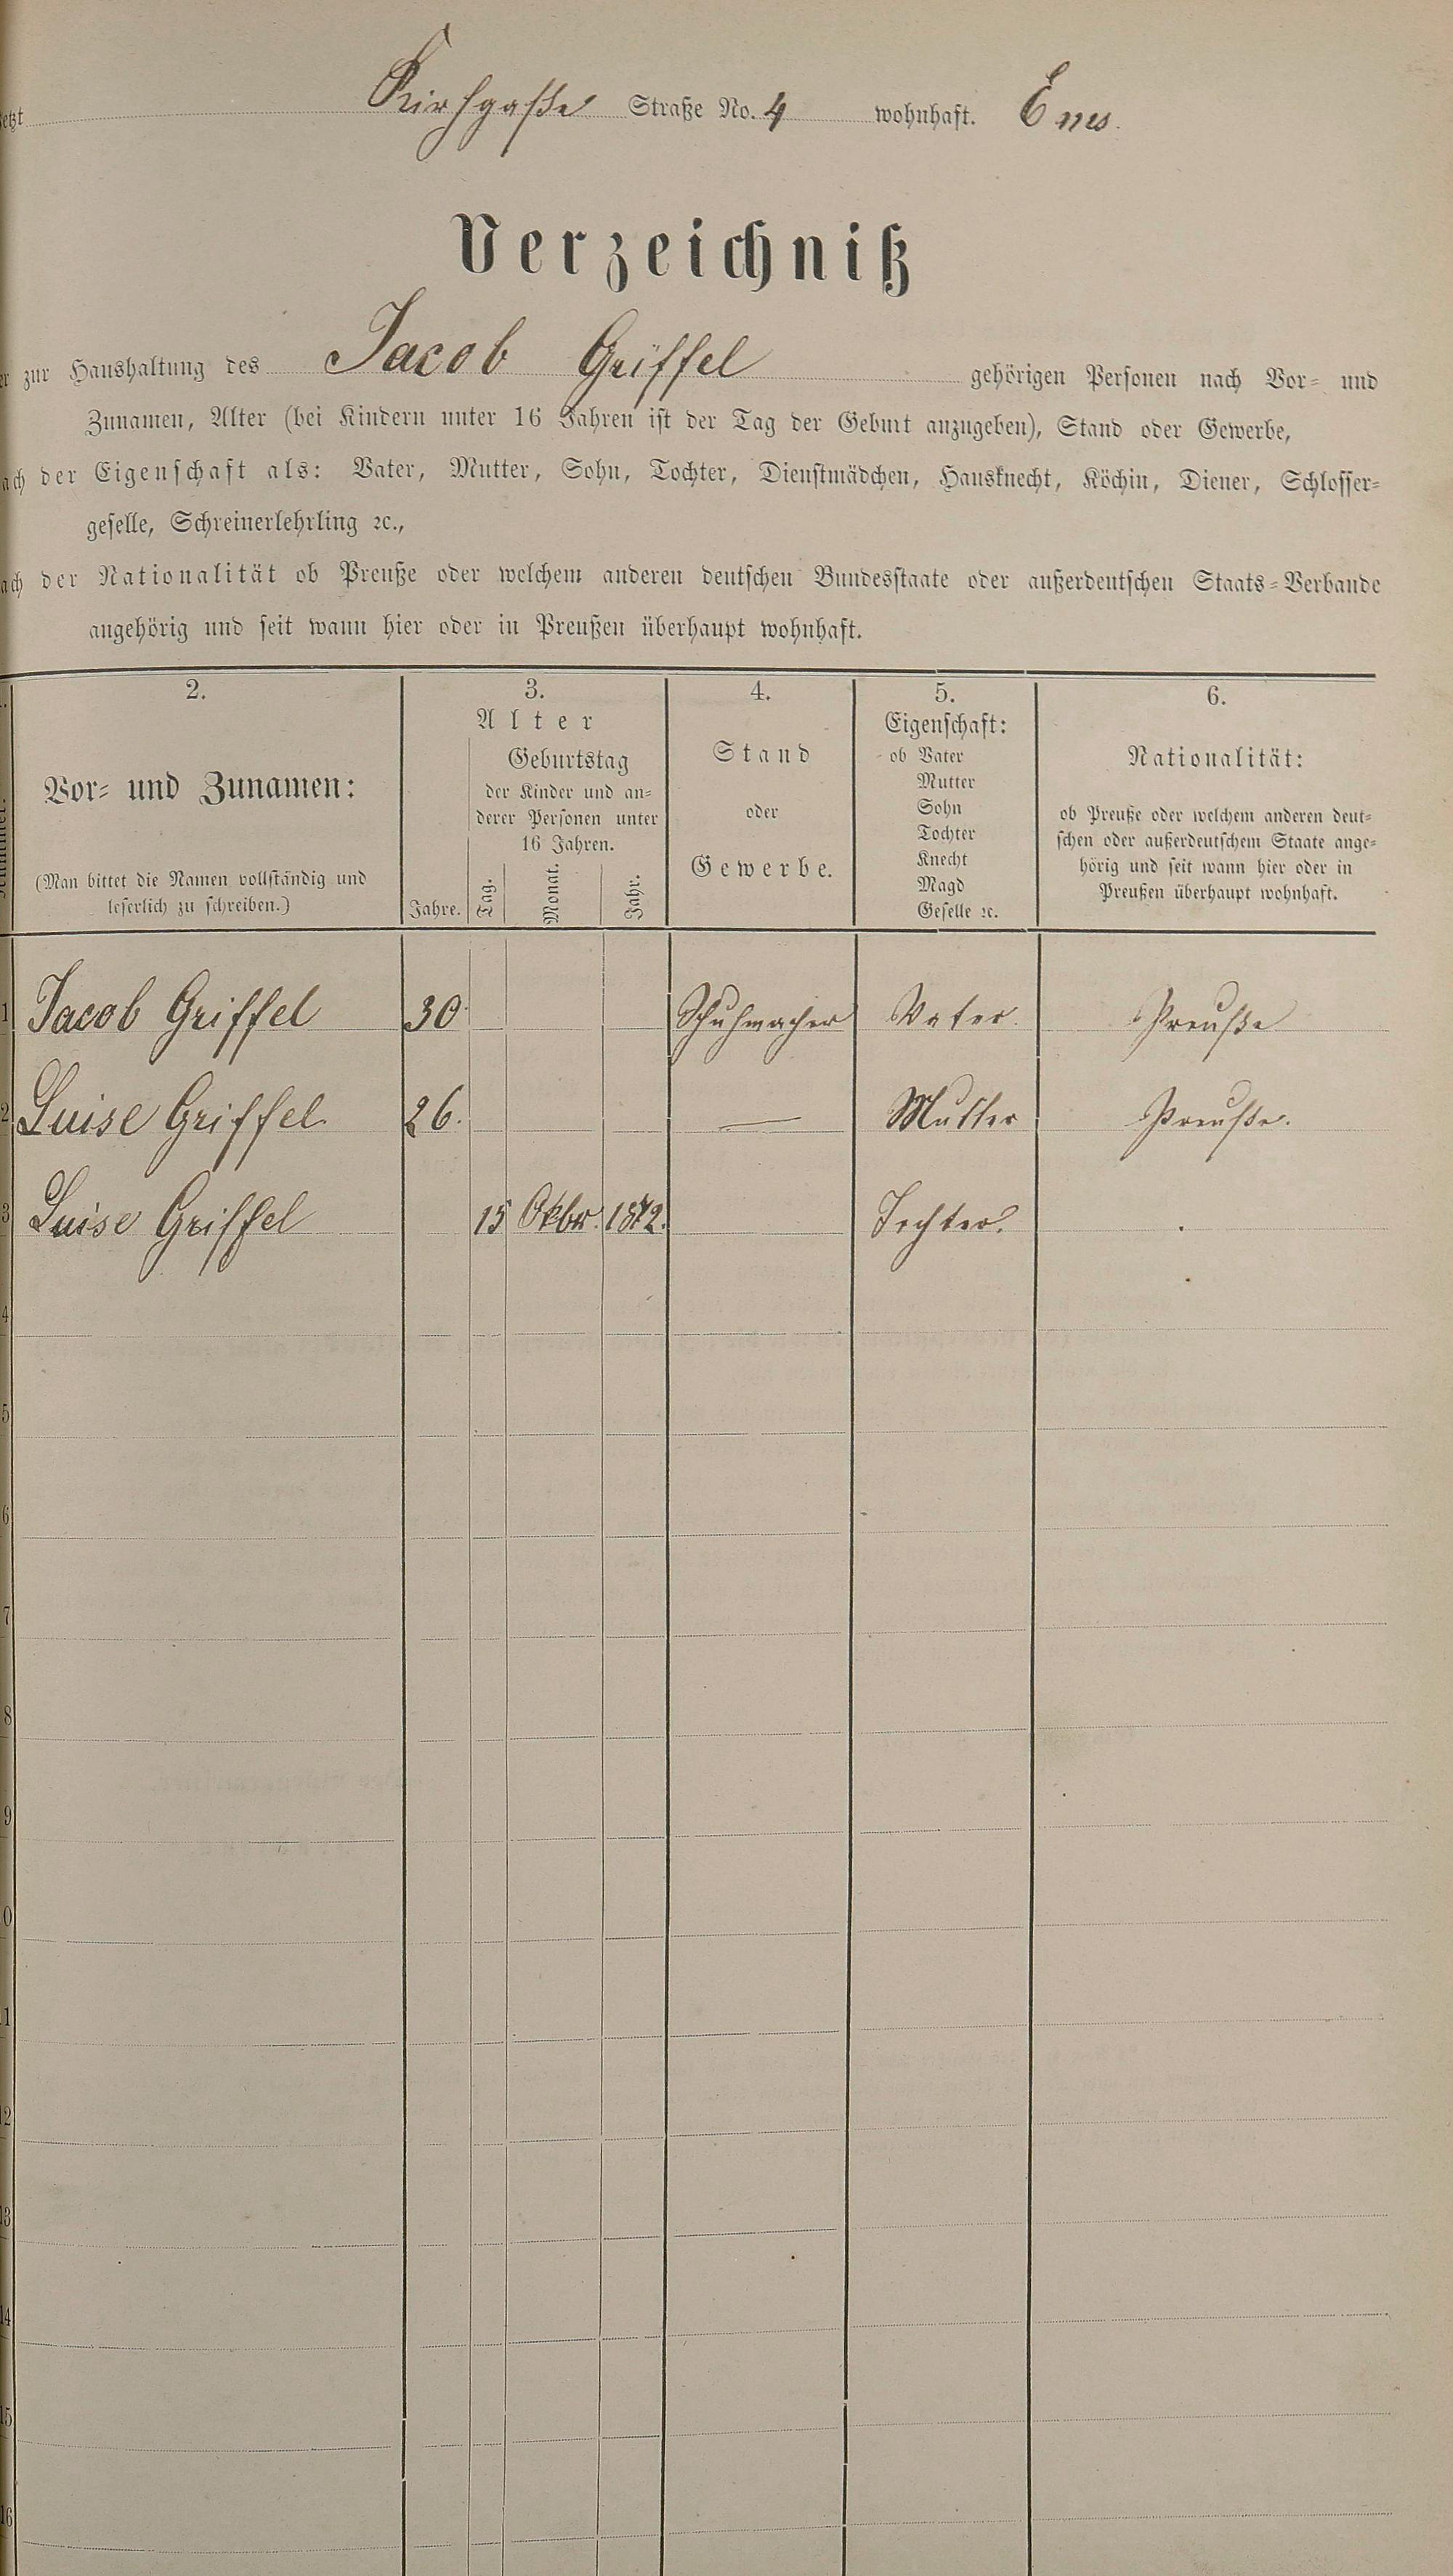 etzt Kirchgaße Straße No. 4 wohnhaft. Ems.
Verzeichniß
zur Haushaltung des Jacob Griffel gehörigen Personen nach Vor- und
Zunamen, Alter (bei Kindern unter 16 Jahren ist der Tag der Geburt anzugeben), Stand oder Gewerbe,
ach der Eigenschaft als: Vater, Mutter, Sohn, Tochter, Dienstmädchen, Hausknecht, Köchin, Diener, Schlosser-
geselle, Schreinerlehrling ꝛc.,
ach der Nationalität ob Preuße oder welchem anderen deutschen Bundesstaate oder außerdeutschen Staats-Verbande
angehörig und seit wann hier oder in Preußen überhaupt wohnhaft.
2. 3. 4. 5. 6.
Vor- und Zunamen:
(Man bittet die Namen vollständig und
leserlich zu schreiben.)
Alter
Jahre.
Geburtstag
der Kinder und an-
derer Personen unter
16 Jahren.
Tag. Monat. Jahr.
Stand
oder
Gewerbe.
Eigenschaft:
ob Vater
Mutter
Sohn
Tochter
Knecht
Magd
Geselle ꝛc.
Nationalität:
ob Preuße oder welchem anderen deut-
schen oder außerdeutschem Staate ange-
hörig und seit wann hier oder in
Preußen überhaupt wohnhaft.
1 Jacob Griffel 30. Schuhmacher Vater. Preuße
2 Luise Griffel. 26. — Mutter Preuße.
3 Luise Griffel 15 Okbr. 1872. Tochter.
4
5
6
7
8
9
0
1
12
13
14
15
16